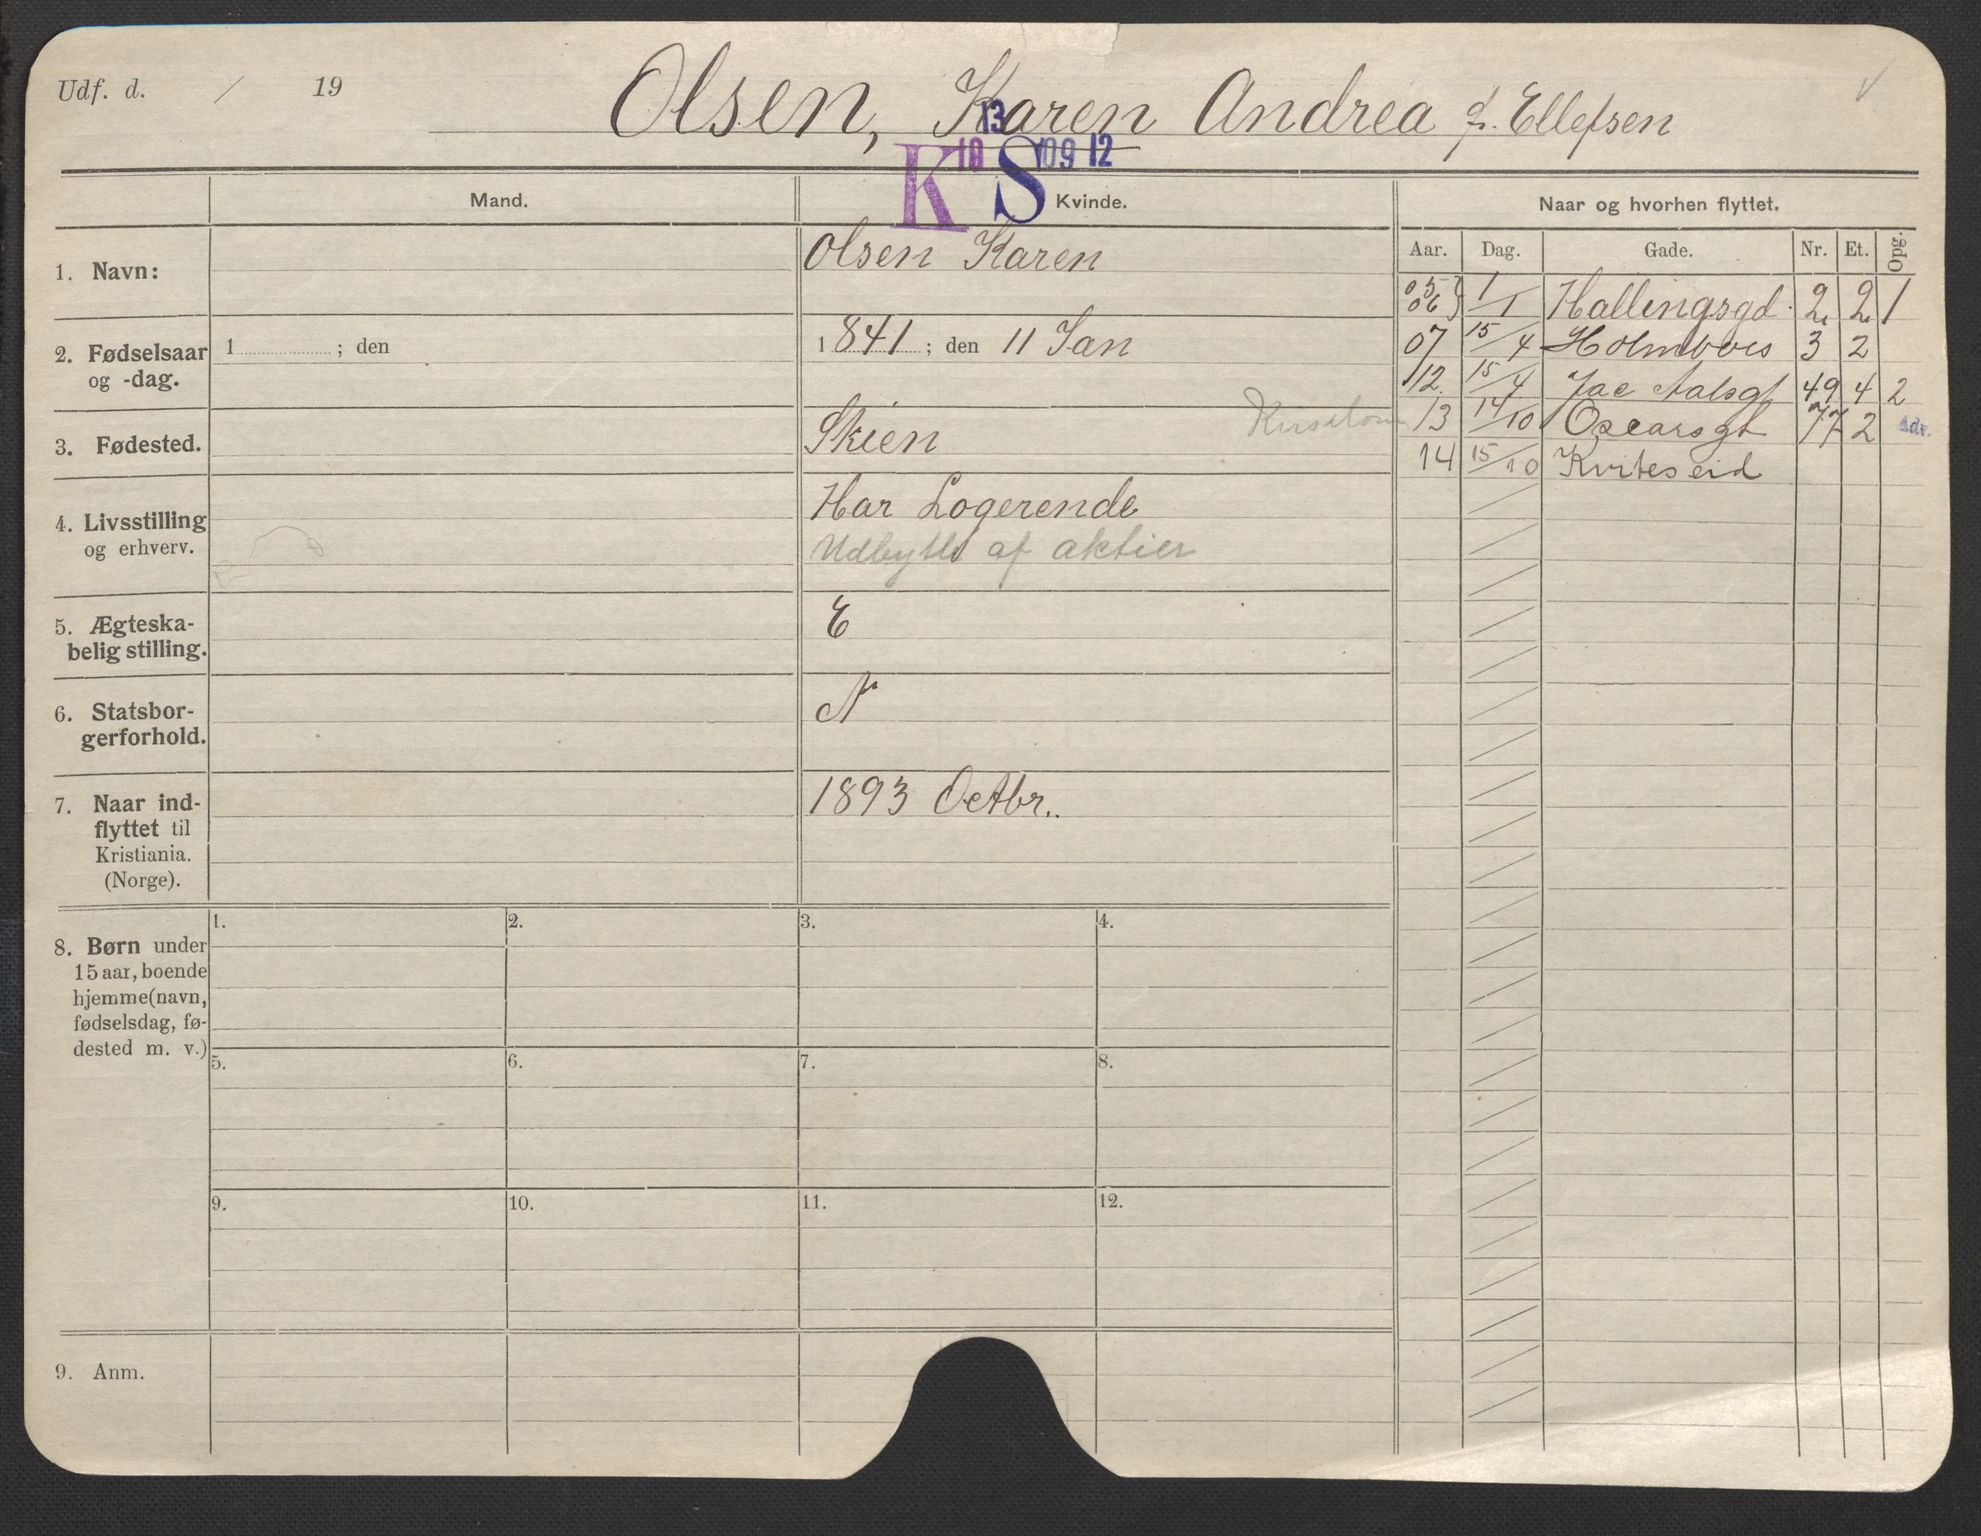 Udf. d. / 19
Olsen, Karen Andrea f. Ellefsen
13
K 18 S 09 12
Mand. Kvinde. Naar og hvorhen flyttet.
Aar. Dag. Gade. Nr. Et. Opg.
1. Navn: Olsen Karen
05 06 } 1/1 Hallingsgd. 2 2 1
07 15/4 Holmboes 3 2
12. 15/4 Jac Aalsgt 49 4 2
13 14/10 Oscarsgt 77 2 Adr.
14 15/10 Kviteseid
2. Fødselsaar og -dag. 1 ; den 1841 ; den 11 Jan
3. Fødested. Skien
4. Livsstilling og erhverv. Har Logerende
Udbytte af aktier
5. Ægteska-
belig stilling. E
6. Statsbor-
gerforhold. N
7. Naar ind-
flyttet til
Kristiania.
(Norge).
1893 Octbr..
8. Børn under
15 aar, boende
hjemme (navn,
fødselsdag, fø-
dested m. v.)
1. 2. 3. 4.
5. 6. 7. 8.
9. 10. 11. 12.
9. Anm.